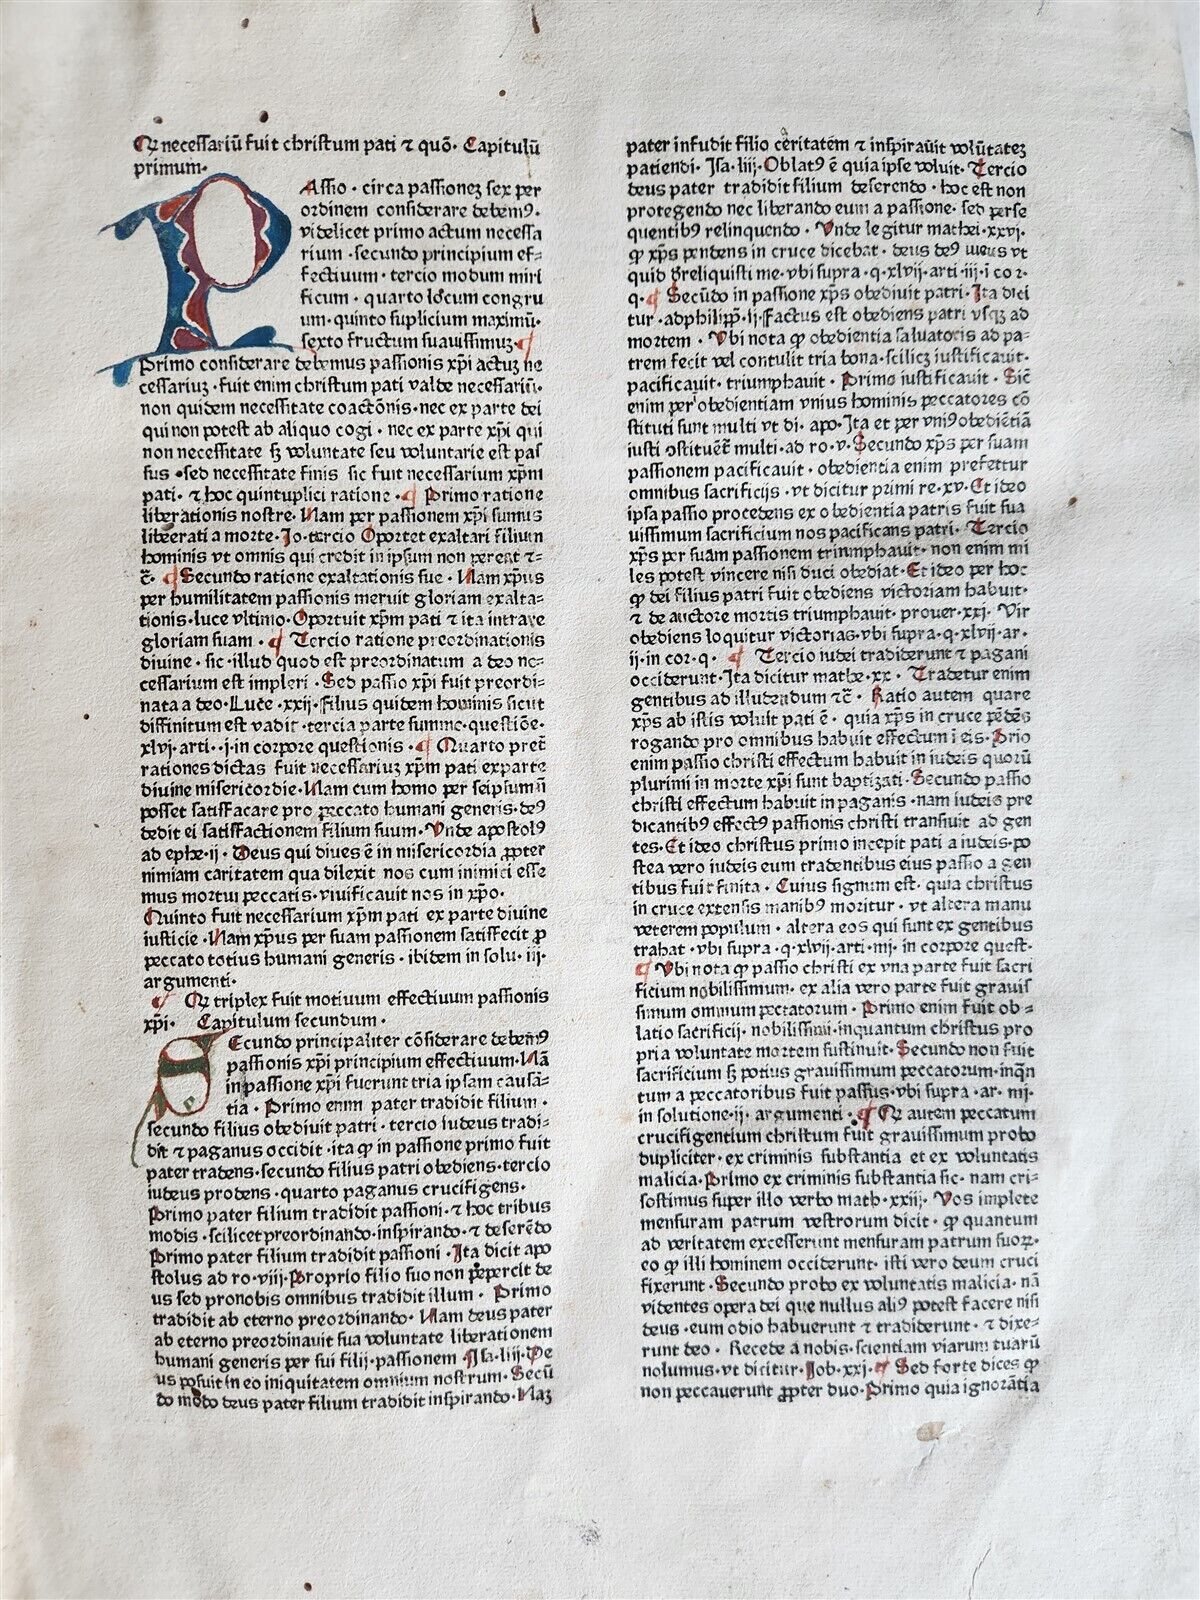 Qꝛ necessariū fuit christum pati ⁊ quō. Capitulū
primum.
PAssio. circa passionez sex per
ordinem considerare debemꝰ.
videlicet primo actum necessa
rium. secundo principium ef-
fectiuum. tercio modum miri
ficum. quarto locum congru
um. quinto suplicium maximū.
sexto fructum suauissimuz. ¶
Primo considerare debemus passionis xp̄i actuz ne
cessariuz. fuit enim christum pati valde necessariū.
non quidem necessitate coactōnis. nec ex parte dei
qui non potest ab aliquo cogi. nec ex parte xp̄i qui
non necessitate sꝫ voluntate seu voluntarie est pas
sus. sed necessitate finis sic fuit necessarium xp̄m
pati. ⁊ hoc quintuplici ratione. ¶ Primo ratione
liberationis nostre. Nam per passionem xp̄i sumus
liberati a morte. Jo. tercio Oportet exaltari filium
hominis vt omnis qui credit in ipsum non pereat ⁊-
c̄. ¶ Secundo ratione exaltationis sue. Nam xp̄us
per humilitatem passionis meruit gloriam exalta-
tionis. luce vltimo. Oportuit xp̄m pati ⁊ ita intrare
gloriam suam. ¶ Tercio ratione preordinationis
diuine. sic. illud quod est preordinatum a deo ne-
cessarium est impleri. Sed passio xp̄i fuit preordi-
nata a deo. Luce. xxij. filius quidem hominis sicut
diffinitum est vadit. tercia parte summe. questiōe.
xlvj. arti. .j. in corpore questionis. ¶ Quarto preter
rationes dictas fuit necessariuz xp̄m pati ex parte
diuine misericordie. Nam cum homo per seipsum nō
posset satisfacare pro peccato humani generis. deꝰ
dedit ei satisfactionem filium suum. Vnde apostolꝰ
ad ephe. ij. Deus qui diues ē in misericordia ꝓpter
nimiam caritatem qua dilexit nos cum inimici esse
mus mortui peccatis. viuificauit nos in xp̄o.
Quinto fuit necessarium xp̄m pati ex parte diuine
iusticie. Nam xp̄us per suam passionem satisfecit ꝓ
peccato totius humani generis. ibidem in solu. iij.
argumenti.
¶ Qꝛ triplex fuit motiuum effectiuum passionis
xp̄i. Capitulum secundum.
SEcundo principaliter cōsiderare debemꝰ
passionis xp̄i principium effectiuum. Nā
in passione xp̄i fuerunt tria ipsam causā-
tia. Primo enim pater tradidit filium.
secundo filius obediuit patri. tercio iudeus tradi-
dit ⁊ paganus occidit. ita ꝙ in passione primo fuit
pater tradens. secundo filius patri obediens. tercio
iudeus prodens. quarto paganus crucifigens.
Primo pater filium tradidit passioni. ⁊ hoc tribus
modis. scilicet preordinando. inspirando. ⁊ deserēdo
Primo pater filium tradidit passioni. Ita dicit apo
stolus ad ro. viij. Proprio filio suo non pepercit de
us sed pro nobis omnibus tradidit illum. Primo
tradidit ab eterno preordinando. Nam deus pater
ab eterno preordinauit sua voluntate liberationem
humani generis per sui filij. passionem. Isa. liij. De
us posuit in eo iniquitatem omnium nostrum. Secū
do modo deus pater filium tradidit inspirando. Naz
pater infudit filio ceritatem ⁊ inspirauit volūtatez
patiendi. Isa. liij. Oblatꝰ ē quia ipse voluit. Tercio
deus pater tradidit filium deserendo. hoc est non
protegendo nec liberando eum a passione. sed perse
quentibꝰ relinquendo. Vnde legitur mathei. xxvj.
ꝙ xp̄s pendens in cruce dicebat. deus deꝰ meus vt
quid dereliquisti me. vbi supra. q. xlvij. arti. iij. i cor.
q. ¶ Secūdo in passione xp̄s obediuit patri. Ita dici
tur. ad philipp̄. ij. Factus est obediens patri vsqꝫ ad
mortem. Vbi nota ꝙ obedientia saluatoris ad pa-
trem fecit vel contulit tria bona. scilicꝫ iustificauit.
pacificauit. triumphauit. Primo iustificauit. Sic̄
enim per obedientiam vnius hominis peccatores cō
stituti sunt multi vt di. apo. Ita et per vniꝰ obediētiā
iusti ꝯstituēt multi. ad ro. v. Secundo xp̄s per suam
passionem pacificauit. obedientia enim prefertur
omnibus sacrificijs. vt dicitur primi re. xv. Et ideo
ipsa passio procedens ex obedientia patris fuit sua
uissimum sacrificium nos pacificans patri. Tercio
xp̄s per suam passionem triumphauit. non enim mi
les potest vincere nisi duci obediat. Et ideo per hoc
ꝙ dei filius patri fuit obediens victoriam habuit.
⁊ de auctore mortis triumphauit. prouer. xxj. Vir
obediens loquitur victorias. vbi supra. q. xlvij. ar.
ij. in cor. q. ¶ Tercio iudei tradiderunt ⁊ pagani
occiderunt. Ita dicitur mathe. xx. Tradetur enim
gentibus ad illudendum ⁊c̄. Ratio autem quare
xp̄s ab istis voluit pati ē. quia xp̄s in cruce pēdēs
rogando pro omnibus habuit effectum ī eis. Prio
enim passio christi effectum habuit in iudeis quorū
plurimi in morte xp̄i sunt baptizati. Secundo passio
christi effectum habuit in paganis. nam iudeis pre
dicantibꝰ effectꝰ passionis christi transiuit ad gen
tes. Et ideo christus primo incepit pati a iudeis. po
stea vero iudeis eum tradentibus eius passio a gen
tibus fuit finita. Cuius signum est. quia christus
in cruce extensis manibꝰ moritur. vt altera manu
veterem populum. altera eos qui sunt ex gentibus
trahat. vbi supra. q. xlvij. arti. iiij. in corpore quest.
¶ Vbi nota ꝙ passio christi ex vna parte fuit sacri
ficium nobilissimum. ex alia vero parte fuit grauis
simum omnium peccatorum. Primo enim fuit ob-
latio sacrificij. nobilissimi. inquantum christus pro
pria voluntate mortem sustinuit. Secundo non fuit
sacrificium sꝫ potius grauissimum peccatorum. inqn̄
tum a peccatoribus fuit passus. vbi supra. ar. iiij.
in solutione. ij. argumenti. ¶ Qꝛ autem peccatum
crucifigentium christum fuit grauissimum probo
dupliciter. ex criminis substantia et ex voluntatis
malicia. Primo ex criminis substantia sic. nam cri-
sostimus super illo verbo math. xxiij. Vos implete
mensuram patrum vestrorum dicit. ꝙ quantum
ad veritatem excesserunt mensuram patrum suoꝝ.
eo ꝙ illi hominem occiderunt. isti vero deum cruci
fixerunt. Secundo probo ex voluntatis malicia. nā
videntes opera dei que nullus aliꝰ potest facere nisi
deus. eum odio habuerunt ⁊ tradiderunt. ⁊ dixe-
runt deo. Recede a nobis. scientiam viarum tuarū
nolumus. vt dicitur. Job. xxj. ¶ Sed forte dices ꝙ
non peccauerunt ꝓpter duo. Primo quia ignorātia